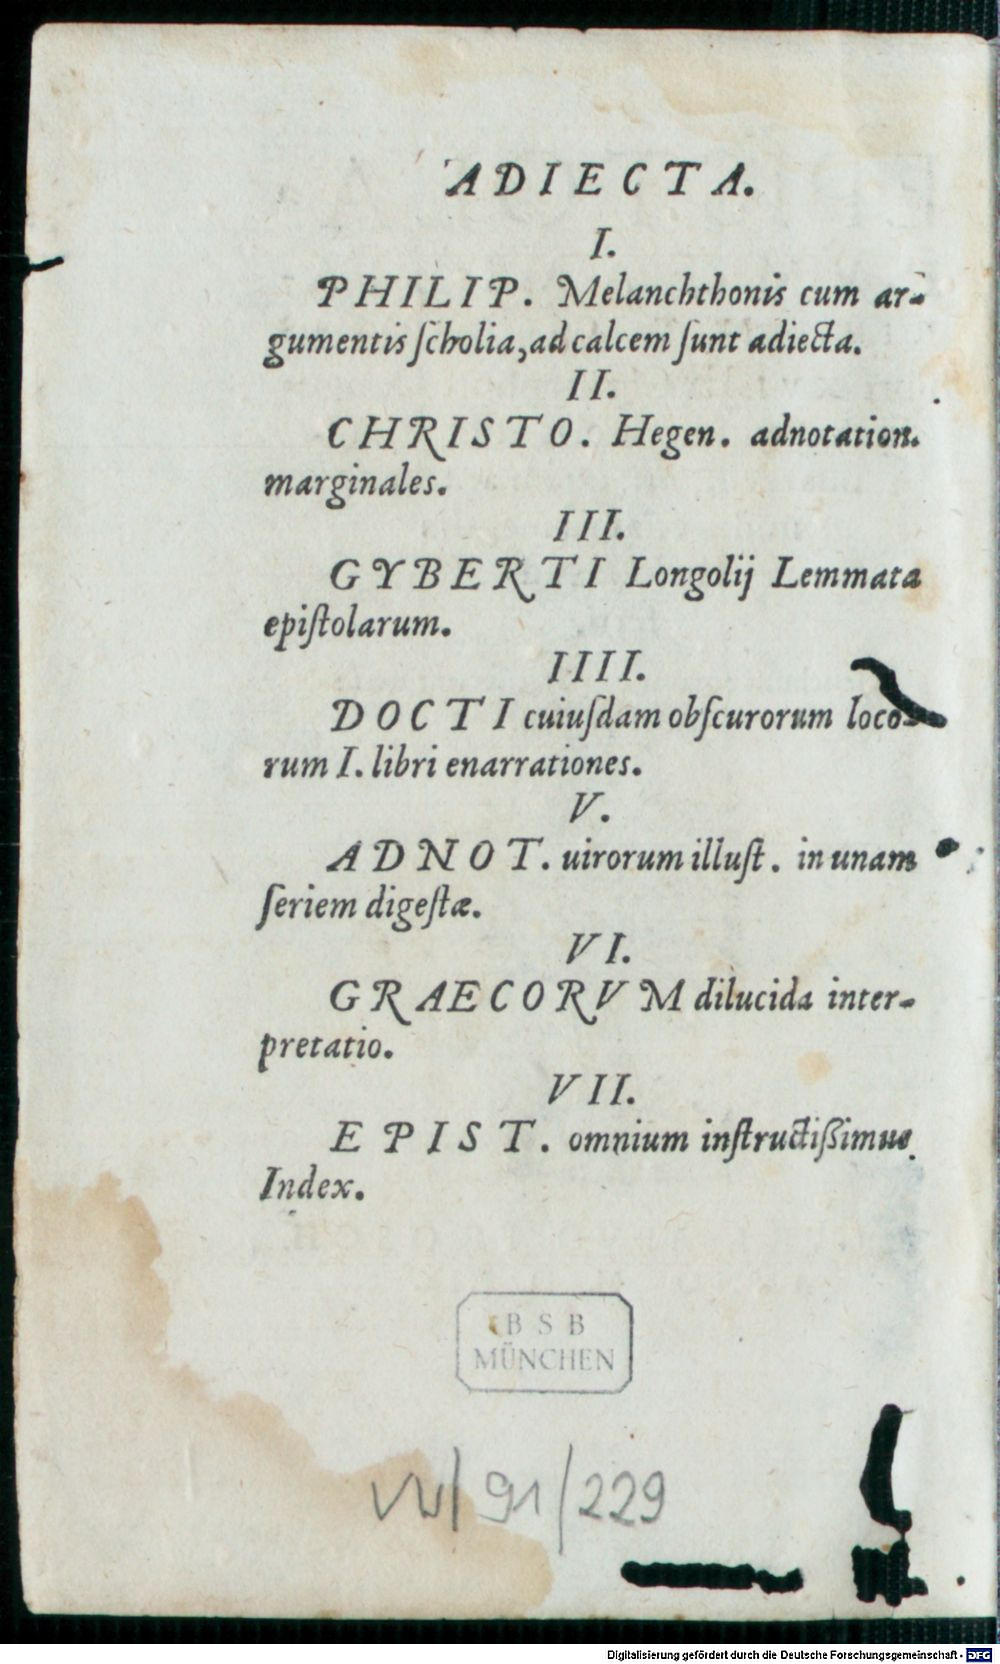 ADIECTA.
I.
PHILIP. Melanchthonis cum ar-
gumentis ſcholia, ad calcem ſunt adiecta.
II.
CHRISTO. Hegen. adnotation.
marginales.
III.
GYBERTI Longolij Lemmata
epiſtolarum.
IIII.
DOCTI cuiuſdam obſcurorum loco-
rum I. libri enarrationes.
V.
ADNOT. uirorum illuſt. in unam
ſeriem digeſtæ.
VI.
GRAECORVM dilucida inter-
pretatio.
VII.
EPIST. omnium inſtructiſſimus
Index.
BSB
MÜNCHEN
91/229
Digitalisierung gefördert durch die Deutsche Forschungsgemeinschaft - DFG